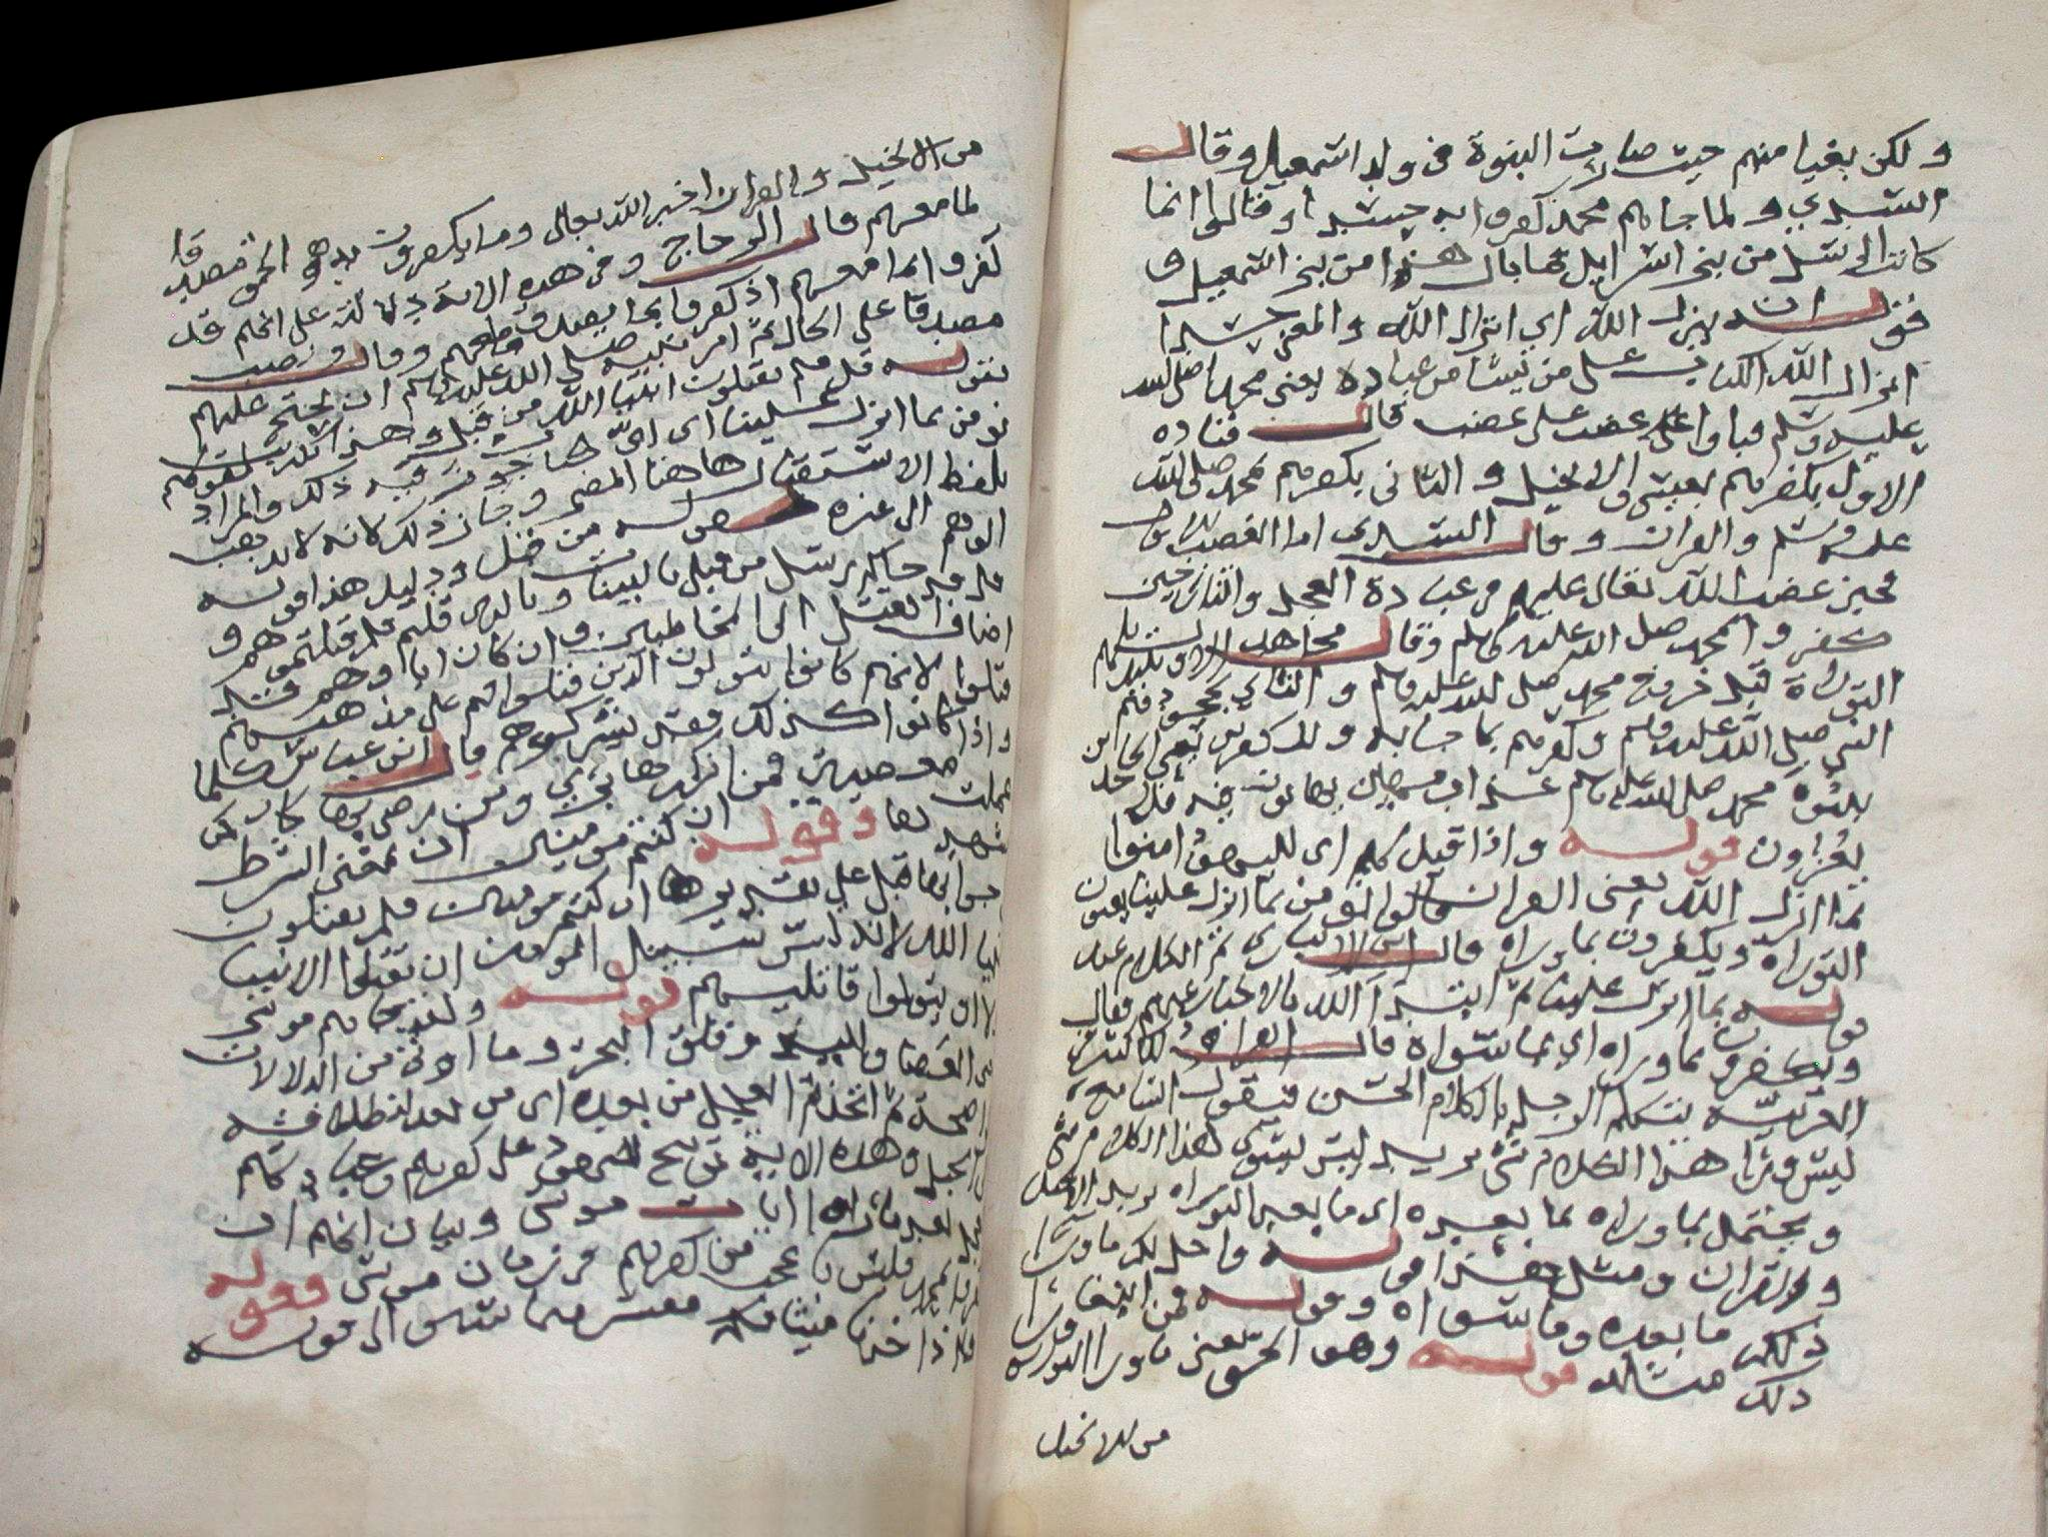 ولكن بغيا منهم حيث صارت النبوة في ولد اسمعيل وقال
السدي ولما جاهم محمد كفروا به حسدا وقالوا انما
كانت الرسل من بني اسرايل فما بال هذا من بني اسمعيل و
قوله ان ينزل الله اي انزال الله والمعنى حسدا
انزال الله الكتاب على من يشا من عباده يعني محمد صلى الله
عليه وسلم فباوا بغضب على غضب قال قتاده
الاول بكفرهم بعيسى والانجيل والثاني بكفرهم بمحمد صلى الله
عليه وسلم والقران وقال السدي اما الغضب الاول
فحين غضب الله تعالى عليهم في عبادة العجل والثاني حين
كفروا بمحمد صلى الله عليه وسلم وقال مجاهد الاول بتبديلهم
التوراة قبل خروج محمد صلى الله عليه وسلم والثاني بجحودهم
النبي صلى الله عليه وسلم وكفرهم بما جا به وللكفرين يعني الجاحدين
بنبوة محمد صلى الله عليه وسلم عذاب مهين يهانون فيه فلا
يعزون قوله واذا قيل لهم اي لليهود امنوا
بما انزل الله يعني القران قالوا نؤمن بما انزل علينا يعنون
التوراه ويكفرون بما وراه قال ابن الانباري تم الكلام عند
قوله بما انزل علينا ثم ابتدا الله بالاخبار عنهم فقال
ويكفرون بما وراه اي بما سواه قال الفرا وذلك كثير في
العربية يتكلم الرجل بالكلام الحسن فيقول السامع
ليس ورا هذا الكلام شي يريد ليس سوى هذا الكلام شي
ويحتمل بما وراه بما بعده اي ما بعد التوراه يريد الانجيل
والقران ومثل هذا قوله واحل لكم ما ورا
ذلكم ما بعده وما سواه وقوله فمن ابتغى ورا
ذلك مثله قوله وهو الحق يعني ما ورا التوراه
من الانجيل
من الانجيل والقران اخبر الله تعالى وما يكفرون به هو الحق مصدقا
لما معهم قال الزجاج وفي هذه الاية دلالة على انهم قد
كفروا بما معهم اذ كفروا بما يصدق ما معهم وقال ونصب
مصدقا على الحال ثم امر نبيه صلى الله عليه وسلم ان يحتج عليهم
بقوله قل فلم تقتلون انبيا الله من قبل وهذا تكذيب لقولهم
نومن بما انزل علينا اي اي حاجوز فيه ذلك والمراد
بلفظ الاستقبال هاهنا المضي وجاز ذلك كانه لا يذهب
الوهم الى غيره لقوله من قبل ودليل هذا قوله
قل قد جاكم رسل من قبلي بالبينات وبالذي قلتم فلم قتلتموهم و
اضاف القتل الى المخاطبين وان كان اباوهم قد
قتلوا لانهم كانوا يتولون الذين قتلوا فهم على مذهبهم
واذا كانوا كذلك فقد شركوهم قال ابن عباس كلما
عملت معصية فمن انكرها بري ومن رضي بها كان كمن
شهدها وقوله ان كنتم مومنين ان بمعنى الشرط
جوابها قبل على تقديرها ان كنتم مومنين فلم تقتلون
انبيا الله لانه ليس سبيل المومن ان تقتلوا الانبيا
لا او يتولوا قاتليهم قوله ولقد جاكم موسى
يعني العصا واليد وفلق البحر وما اوتي من الدلالات
الواضحة ثم اتخذتم العجل من بعده اي من بعد انطلاقه
الى الجبل وهذه الاية توبيخ لليهود على كفرهم وعبادتهم
العجل بعد ما راوا ايات موسى وبيان انهم ان
كفروا بمحمد فليس باعجب من كفرهم في زمان موسى قوله
واذ اخذنا ميثاقكم مفسر فيما سبق الى قوله